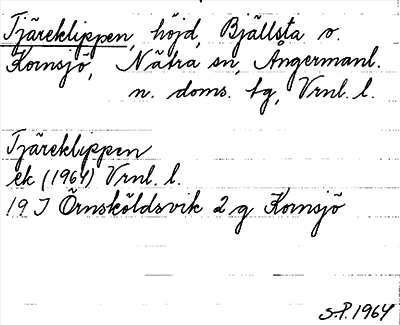 Tjäreklippen, höjd, Bjällsta o.
Kornsjö, Nätra sn, Ångermanl.
n. doms. tg, Vrnl. l.
Tjäreklippen
ek (1964) Vrnl. l.
19 J Örnsköldsvik 2 g Kornsjö
S.P. 1964